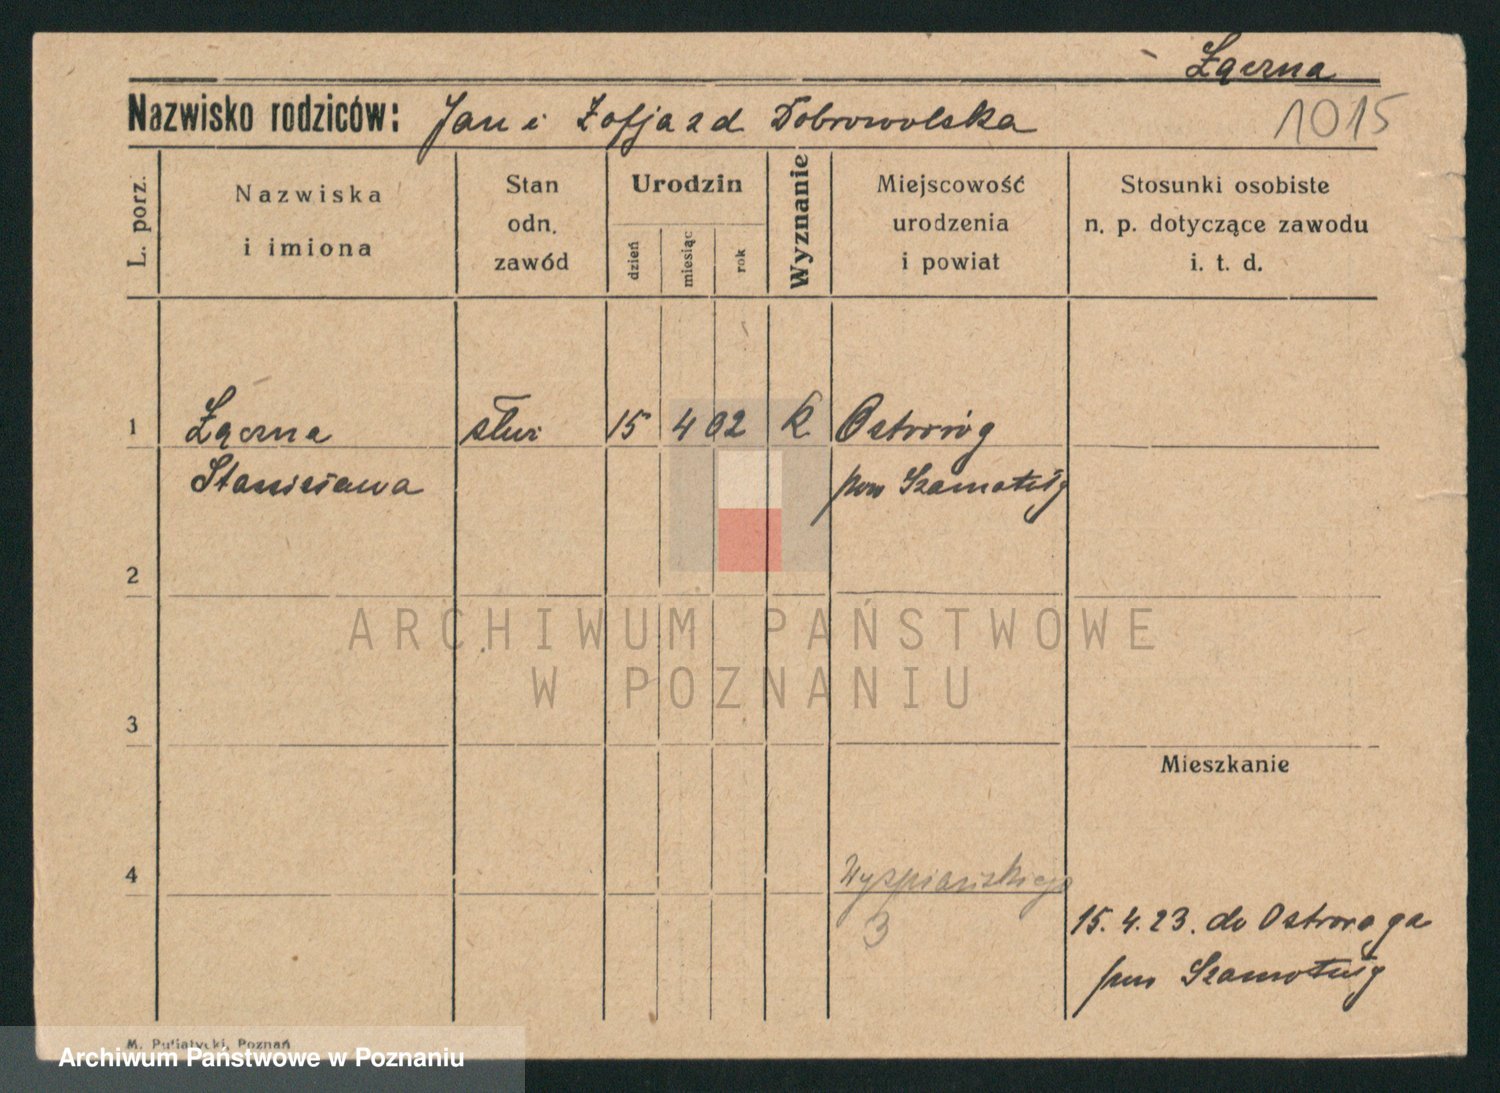 Łączna
Nazwisko rodziców: Jan i Zofja z d Dobrowolska
1015
L. porz.
Nazwiska
i imiona
Stan
odn.
zawód
Urodzin
dzień
miesiąc
rok
Wyznanie
Miejscowość
urodzenia
i powiat
Stosunki osobiste
n. p. dotyczące zawodu
i. t. d.
1 Łączna służ 15 4 02 k Ostroróg
Stanisława pow Szamotuły
2
3
Mieszkanie
4 Wyspiańskiego
3
15. 4. 23. do Ostroroga
pow Szamotuły
M. Putiatycki, Poznań
ARCHIWUM PAŃSTWOWE
W POZNANIU
Archiwum Państwowe w Poznaniu